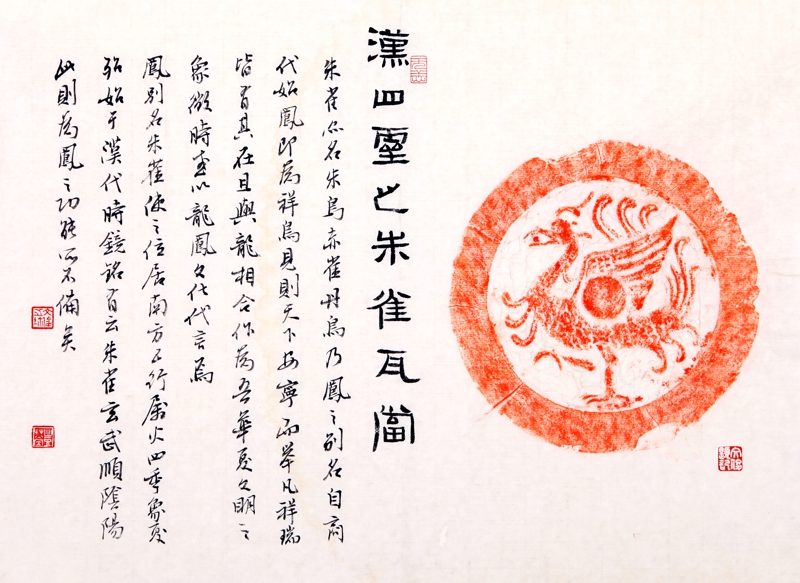 漢四靈之朱雀瓦當
朱雀亦名朱鳥赤雀丹鳥乃鳳之別名自商
代始鳳即為祥鳥見則天下安寧而舉凡祥瑞
皆有其在且與龍相合作為吾華夏文明之
象徵時至以龍鳳文化代言焉
鳳別名朱雀使之位居南方五行屬火四季象夏
始于漢代時鏡銘有云朱雀玄武順陰陽
此則為鳳之功能不備矣